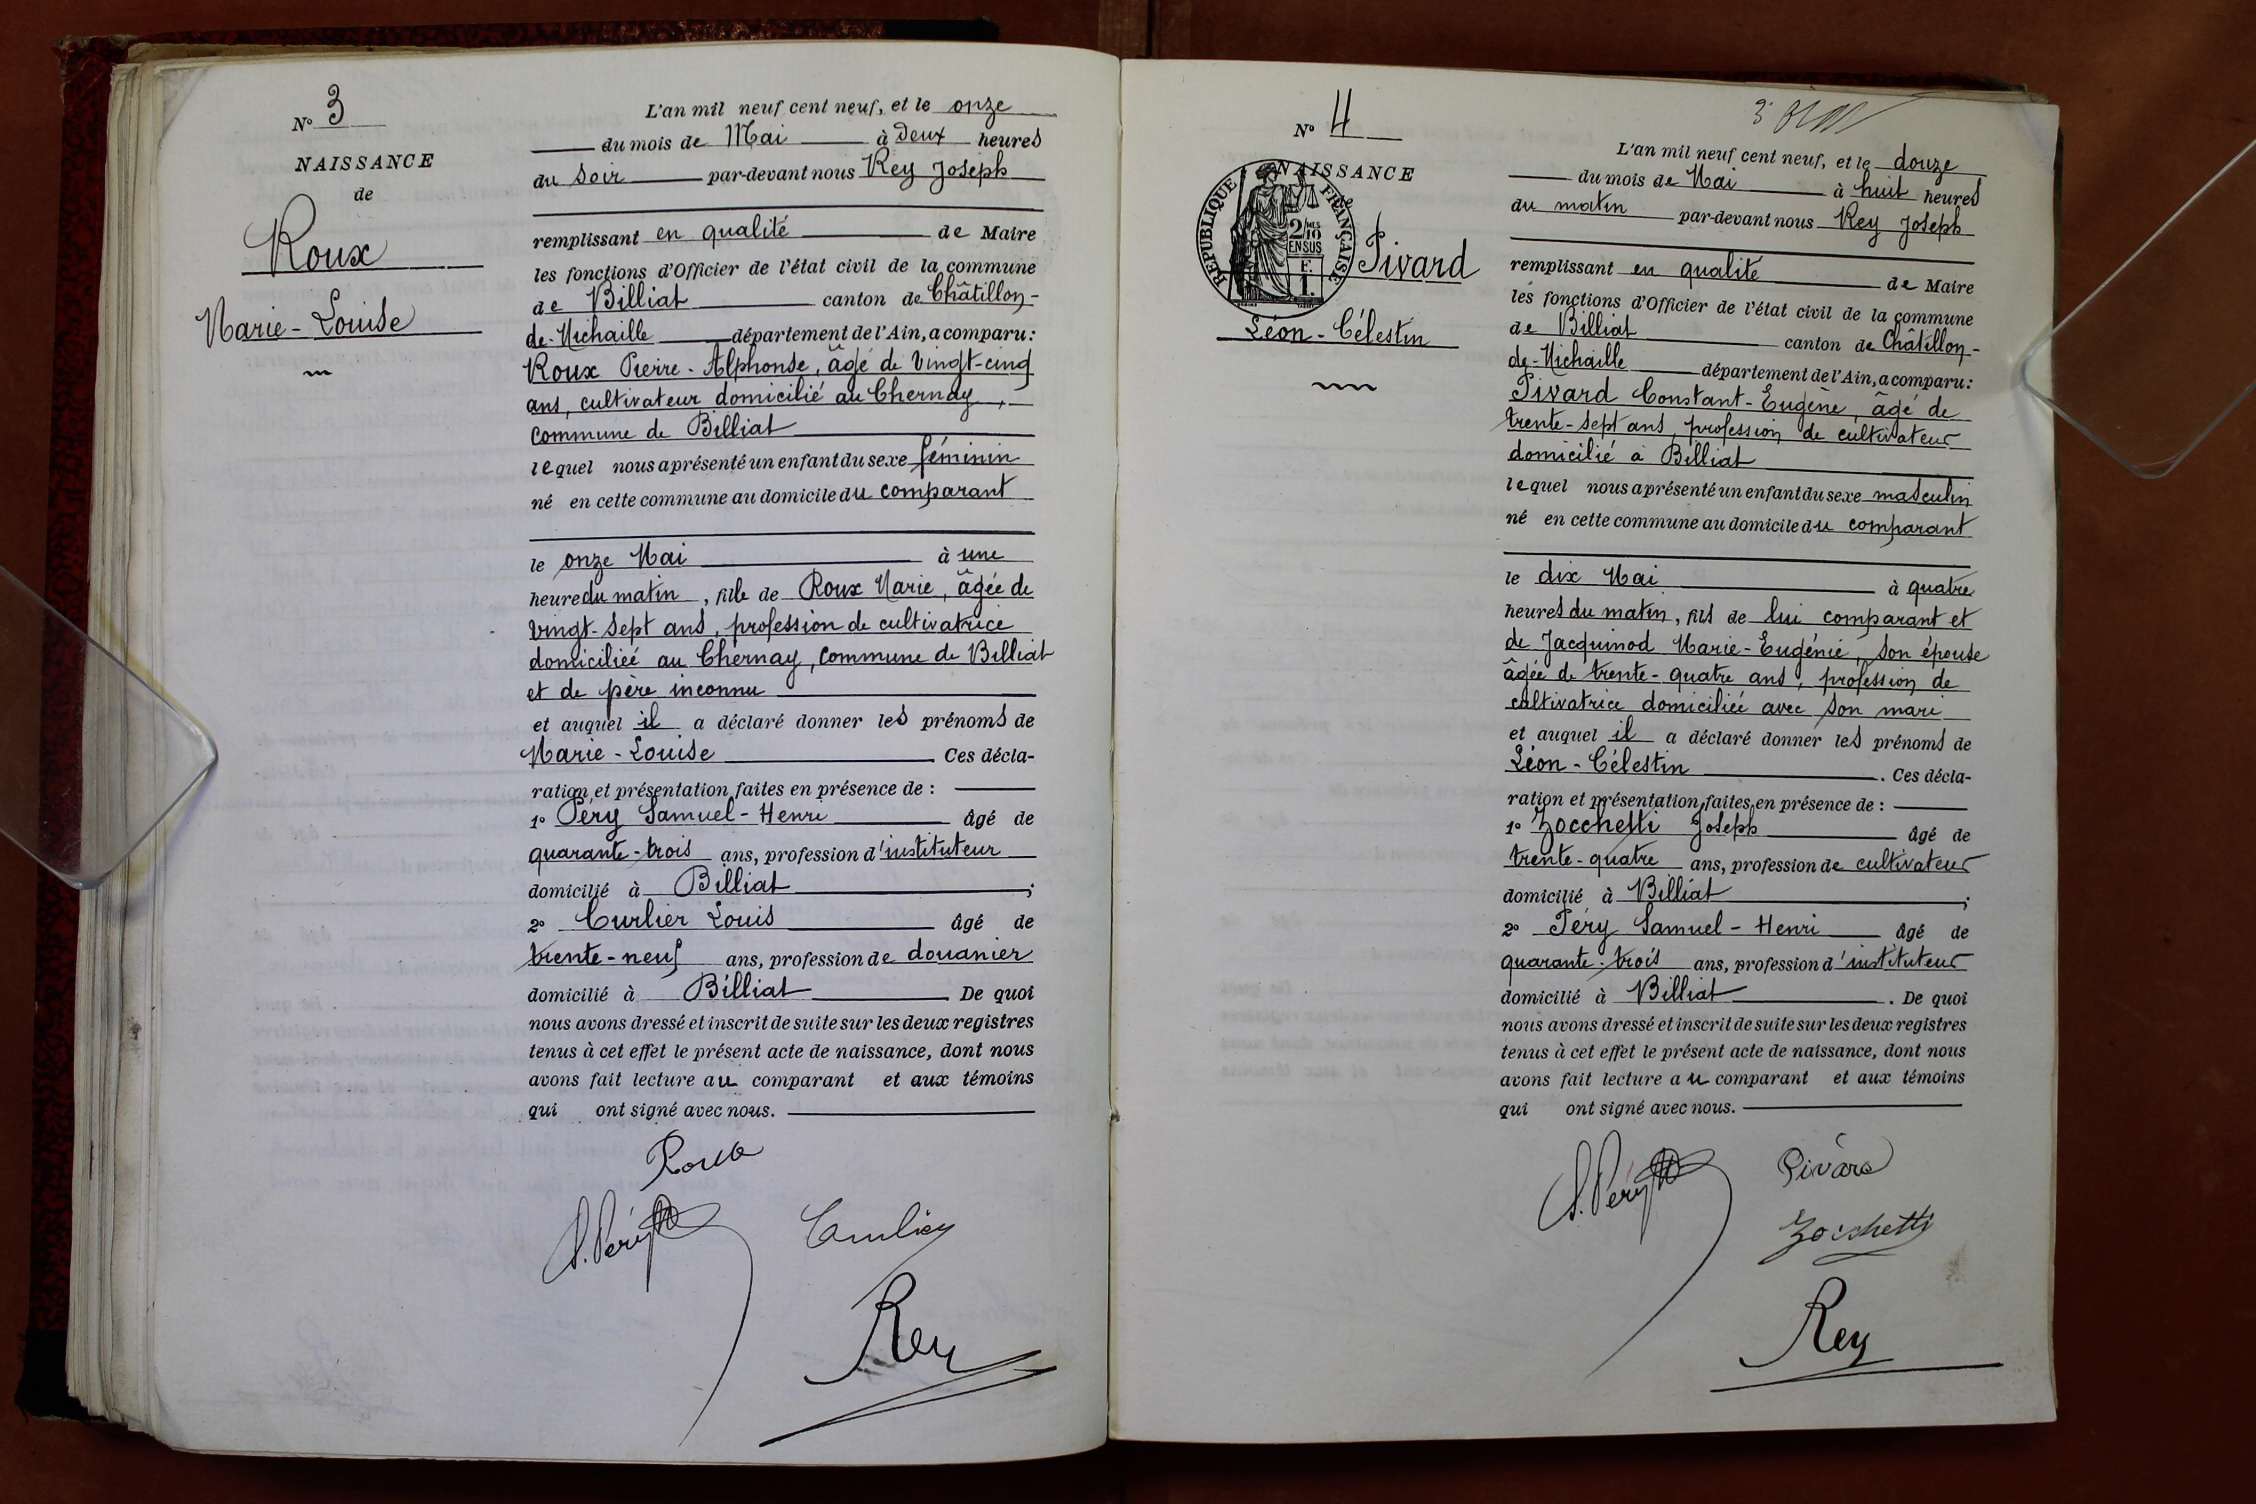 Nº 3
NAISSANCE
de
Roux
Marie-Louise
L'an mil neuf cent neuf, et le onze
du mois de Mai à deux heures
du soir par-devant nous Rey Joseph
remplissant en qualité de Maire
les fonctions d'Officier de l'état civil de la commune
de Billiat canton de Châtillon-
de-Michaille département de l'Ain, a comparu :
Roux Pierre-Alphonse, âgé de vingt-cinq
ans, cultivateur domicilié au Chernay,
commune de Billiat
lequel nous a présenté un enfant du sexe féminin
né en cette commune au domicile du comparant
le onze Mai à une
heure du matin, fille de Roux Marie, âgée de
vingt-sept ans, profession de cultivatrice
domiciliée au Chernay, commune de Billiat
et de père inconnu
et auquel il a déclaré donner les prénoms de
Marie-Louise Ces décla-
ration et présentation faites en présence de :
1º Péry Samuel-Henri âgé de
quarante-trois ans, profession d'instituteur
domicilié à Billiat ;
2º Curlier Louis âgé de
trente-neuf ans, profession de douanier
domicilié à Billiat. De quoi
nous avons dressé et inscrit de suite sur les deux registres
tenus à cet effet le présent acte de naissance, dont nous
avons fait lecture au comparant et aux témoins
qui ont signé avec nous.
Roux
S. Péry Curlier
Rey
Nº 4
NAISSANCE
RÉPUBLIQUE FRANÇAISE
2/10MES
EN SUS
F.
1.
Pivard
Léon-Célestin
L'an mil neuf cent neuf, et le douze
du mois de Mai à huit heures
du matin par-devant nous Rey Joseph
remplissant en qualité de Maire
les fonctions d'Officier de l'état civil de la commune
de Billiat canton de Châtillon-
de-Michaille département de l'Ain, a comparu :
Pivard Constant-Eugène, âgé de
trente-sept ans, profession de cultivateur
domicilié à Billiat
lequel nous a présenté un enfant du sexe masculin
né en cette commune au domicile du comparant
le dix Mai à quatre
heures du matin, fils de lui comparant et
de Jacquinod Marie-Eugénie, son épouse
âgée de trente-quatre ans, profession de
cultivatrice domiciliée avec son mari
et auquel il a déclaré donner les prénoms de
Léon-Célestin. Ces décla-
ration et présentation faites en présence de :
1º Zocchetti Joseph âgé de
trente-quatre ans, profession de cultivateur
domicilié à Billiat ;
2º Péry Samuel-Henri âgé de
quarante-trois ans, profession d'instituteur
domicilié à Billiat. De quoi
nous avons dressé et inscrit de suite sur les deux registres
tenus à cet effet le présent acte de naissance, dont nous
avons fait lecture au comparant et aux témoins
qui ont signé avec nous.
S. Péry Pivard
Zocchetti
Rey